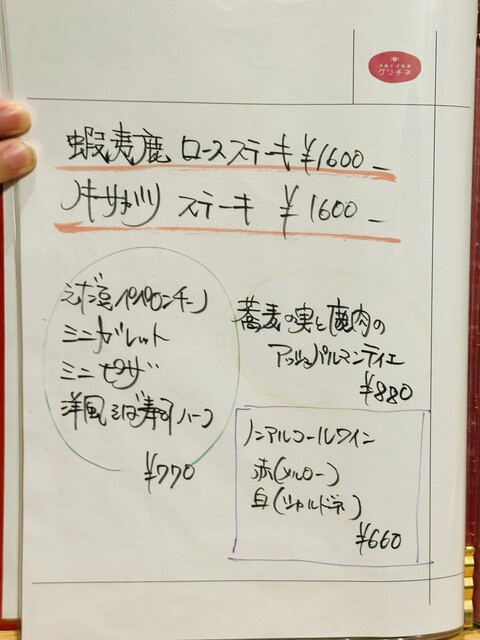 グリチネ
蝦夷鹿 ロースステーキ ¥1600-
ステーキ ¥1600-
えだ豆ペペロンチーノ
ミニガレット
ミニピザ
洋風そば寿司ハーフ
¥770
蕎麦の実と鹿肉の
アッシェパルマンティエ
¥880
ノンアルコールワイン
赤(メルロー)
白(シャルドネ)
¥660